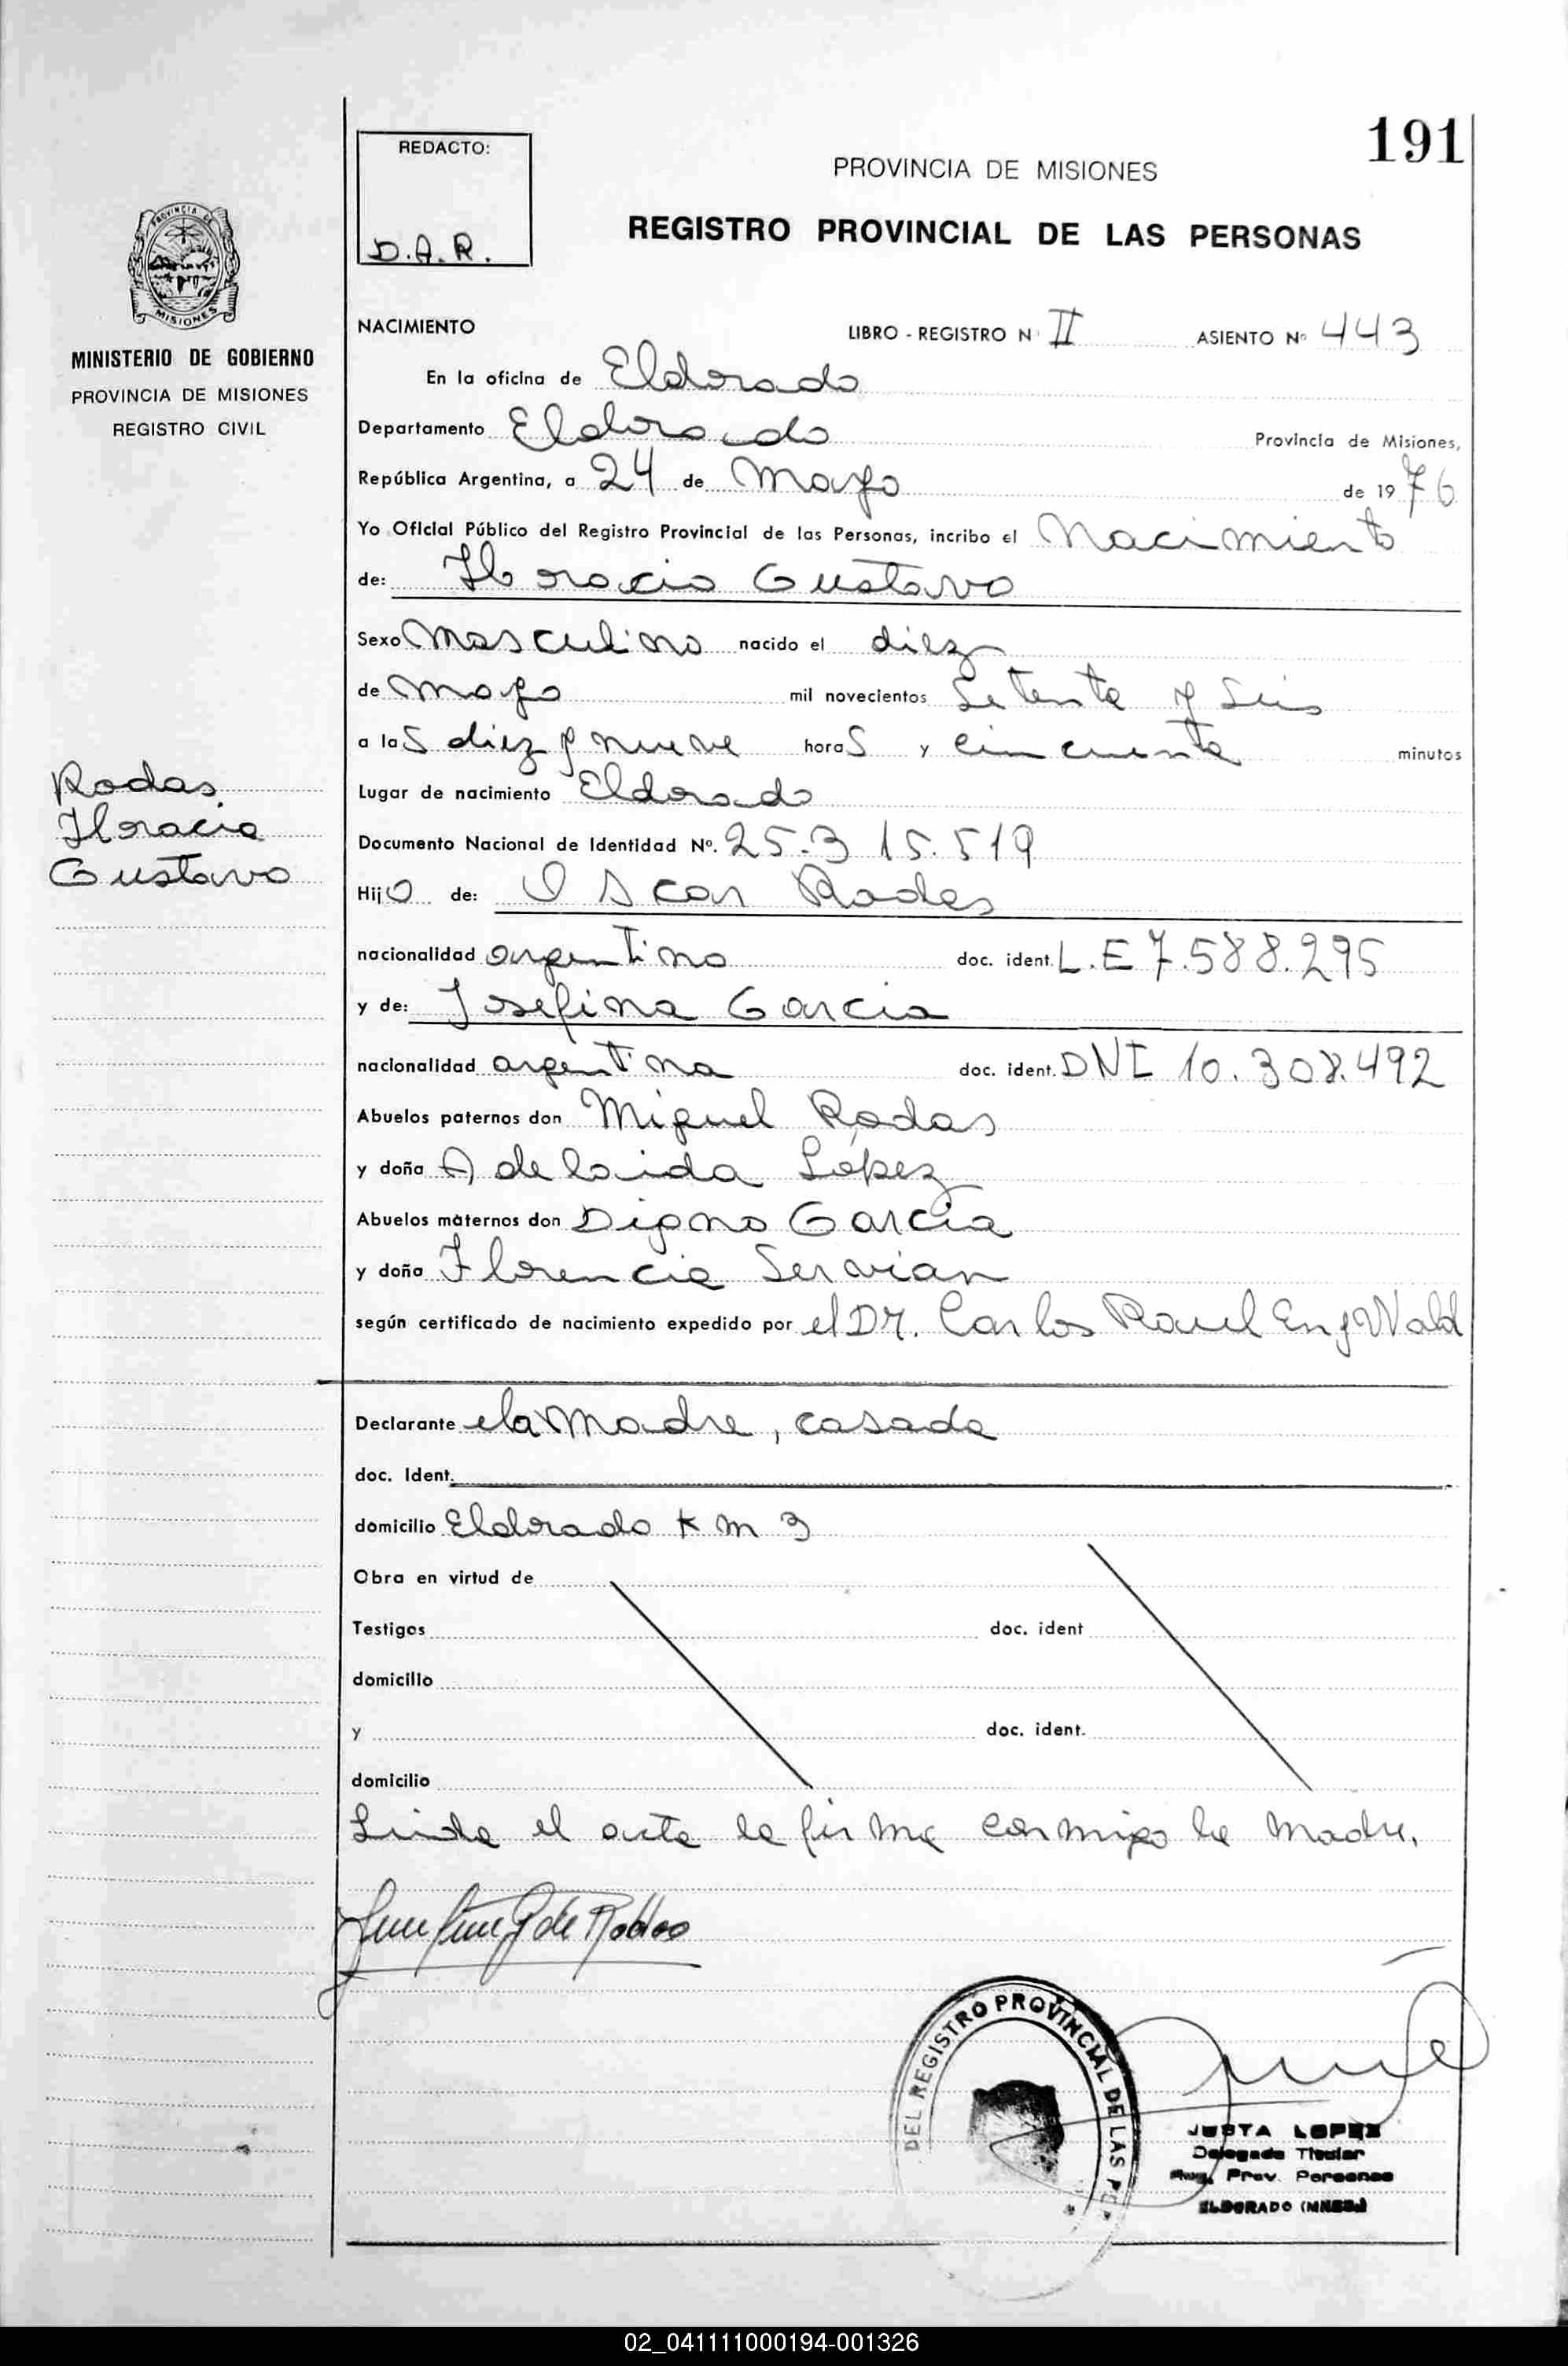 191
REDACTO:
D.A.R.
PROVINCIA DE MISIONES
REGISTRO PROVINCIAL DE LAS PERSONAS
PROVINCIA DE
MISIONES
MINISTERIO DE GOBIERNO
PROVINCIA DE MISIONES
REGISTRO CIVIL
NACIMIENTO LIBRO - REGISTRO Nº II ASIENTO Nº 443
En la oficina de Eldorado
Departamento Eldorado Provincia de Misiones,
República Argentina, a 24 de Mayo de 1976
Yo Oficial Público del Registro Provincial de las Personas, incribo el Nacimiento
de: Horacio Gustavo
Sexo Masculino nacido el diez
de Mayo mil novecientos Setenta y Seis
a las diez y nueve horas y cincuenta minutos
Rodas
Horacio
Gustavo
Lugar de nacimiento Eldorado
Documento Nacional de Identidad Nº. 25.315.519
Hijo de: Oscar Rodas
nacionalidad argentino doc. ident. L.E 7.588.295
y de: Josefina Garcia
nacionalidad argentina doc. ident. DNI 10.308.492
Abuelos paternos don Miguel Rodas
y doña Adelaida López
Abuelos maternos don Digno Garcia
y doña Florencia Servian
según certificado de nacimiento expedido por el Dr. Carlos Raul EngWald
Declarante la Madre, casada
doc. Ident.
domicilio Eldorado Km 3
Obra en virtud de
Testigos doc. ident
domicilio
y doc. ident.
domicilio
Leida el acta la firma conmigo la madre.
G de Rodas
DEL REGISTRO PROVINCIAL DE LAS PE
JUSTA LOPEZ
Delegada Titular
Reg. Prov. Personas
ELDORADO (MNES.)
02_041111000194-001326